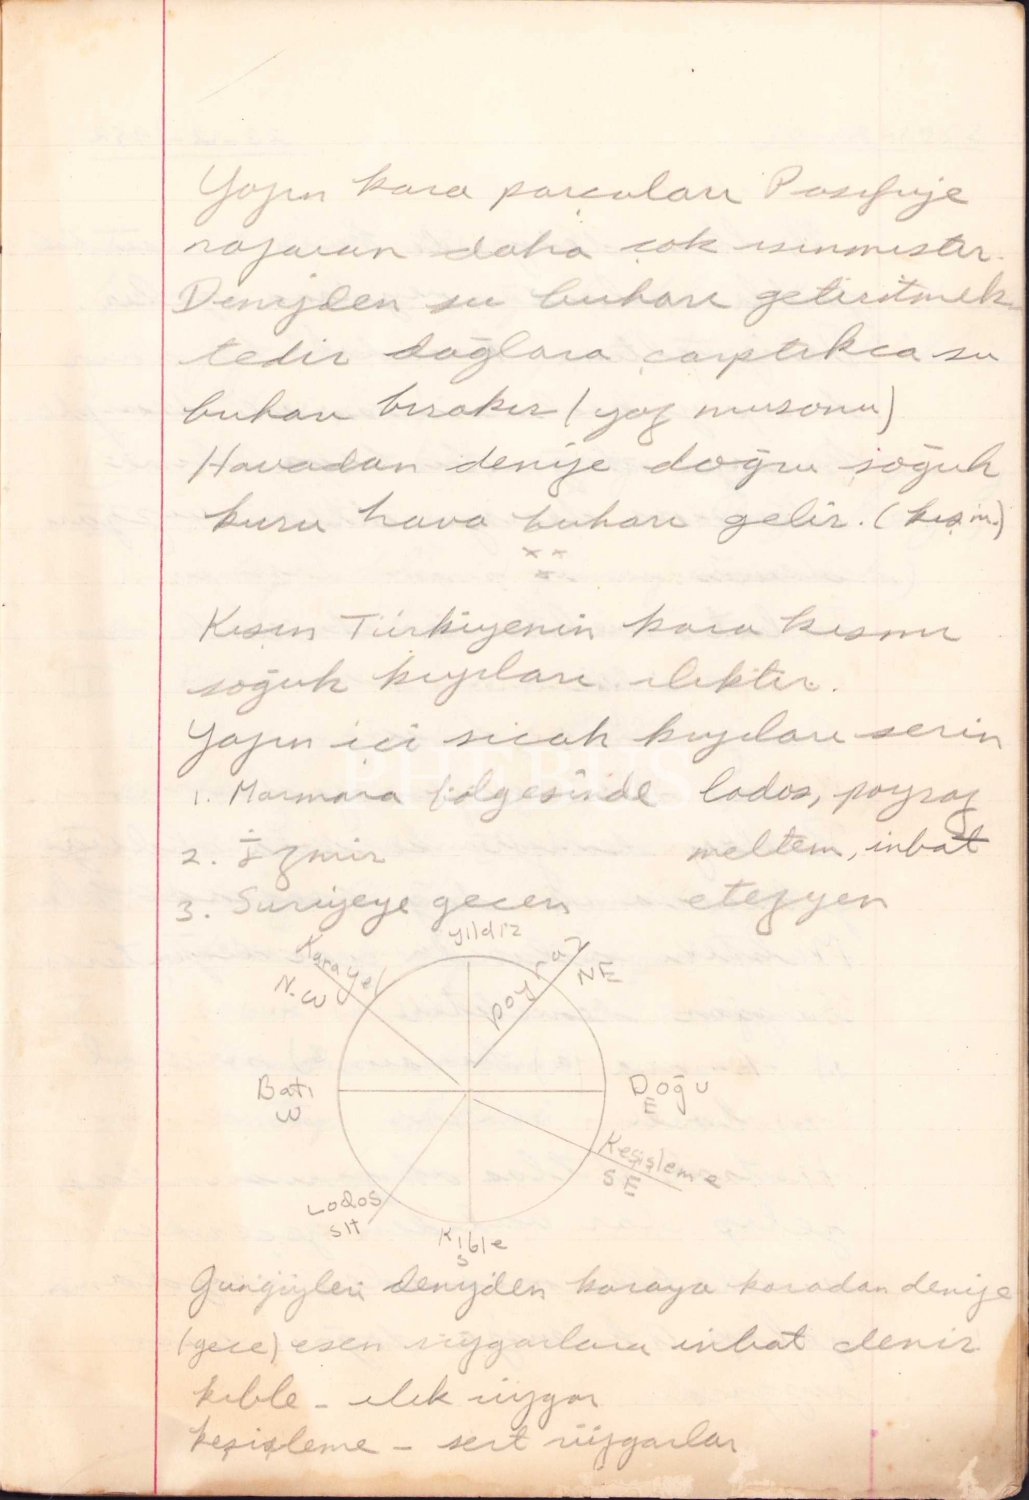 Yazın kara parcaları Pasifiğe
nazaran daha çok ısınmıstır.
Denizden su buharı getiritmek
tedir dağlara çarptıkca su
buharı bırakır (yaz musonu)
Havadan denize doğru soğuk
kuru hava buharı gelir. (kış m.)
Kısın Türkiyenin kara kısmı
soğuk kıyıları ılıktır.
Yazın içi sıcak kıyıları serin
1. Marmara bölgesinde lodos, poyraz
2. İzmir meltem, inbat
3. Suriyeye gecen etezyen
yıldız
Karayel
N.W
poyraz
NE
Batı
W
Doğu
E
Keşişleme
SE
Lodos
Kıble
S
Gündüzleri denizden karaya karadan denize
(gece) esen rüzgarlara inbat denir
kıble - ılık rüzgar
keşişleme - sert rüzgarlar
PHEBUS